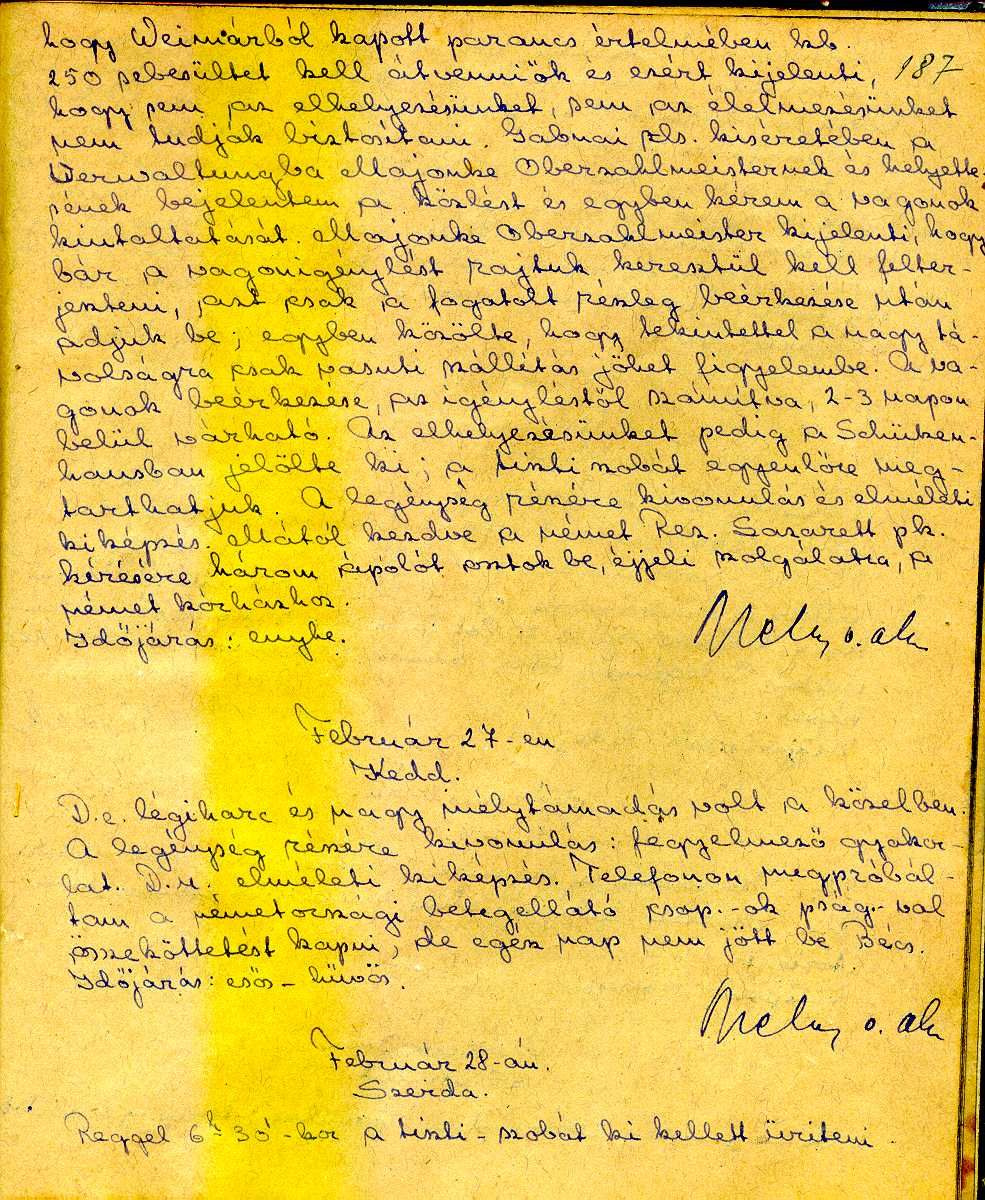 hogy Weimárból kapott parancs értelmében kb.
250 sebesültet kell átvenniök és ezért kijelenti, 187
hogy sem az elhelyezésünket, sem az élelmezésünket
nem tudják biztosítani. Gabnai zls. kiséretében a
Verwaltungba Majonke Oberzahlmeisternek és helyette-
sének bejelentem a közlést és egyben kérem a vagonok
kiutaltatását. Majonke Oberzahlmeister kijelenti, hogy
bár a vagonigénylést rajtuk keresztül kell felter-
jeszteni, azt csak a fogatolt részleg beérkezése után
adjuk be; egyben közölte, hogy tekintettel a nagy tá-
volságra csak vasuti szállítás jöhet figyelembe. A va-
gonok beérkezése, az igényléstől számítva, 2-3 napon
belül várható. Az elhelyezésünket pedig a Schützen-
hausban jelölte ki; a tiszti szobát egyenlőre meg-
tarthatjuk. A legénység részére kivonulás és elméleti
kiképzés. Mától kezdve a német Rez. Lazarett pk.
kérésére három ápolót osztok be, éjjeli szolgálatra, a
német kórházhoz.
Időjárás: enyhe.
o. alu
Február 27-én
Kedd.
D.e. légiharc és nagy mélytámadás volt a közelben.
A legénység részére kivonulás: fegyelmező gyakor-
lat. D.u. elméleti kiképzés. Telefonon megpróbál-
tam a németországi betegellátó csop.-ok pság.-val
összeköttetést kapni, de egész nap nem jött be Bécs.
Időjárás: esős - hüvös.
o. alu
Február 28-án.
Szerda.
Reggel 6h 30-kor a tiszti-szobát ki kellett üriteni.